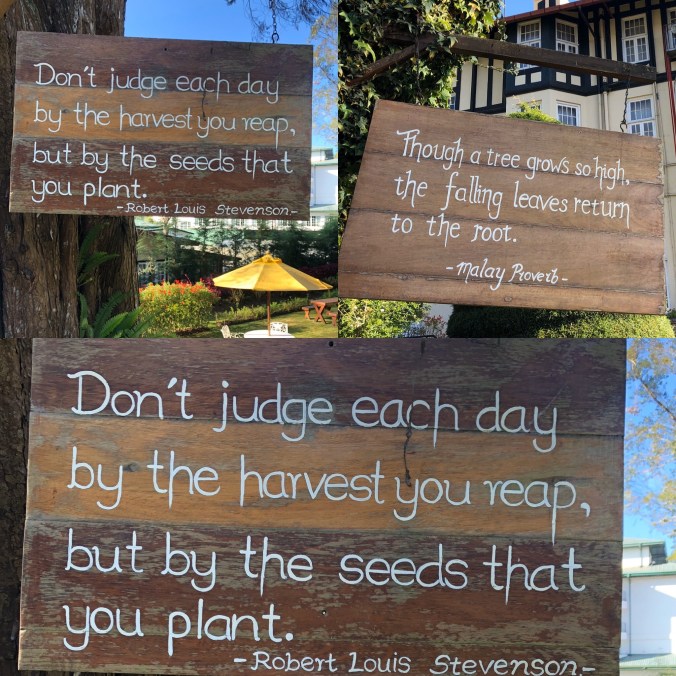 Don't judge each day
by the harvest you reap,
but by the seeds that
you plant.
-Robert Louis Stevenson.-
Though a tree grows so high,
the falling leaves return
to the root.
-Malay Proverb-
Don't judge each day
by the harvest you reap,
but by the seeds that
you plant.
-Robert Louis Stevenson.-